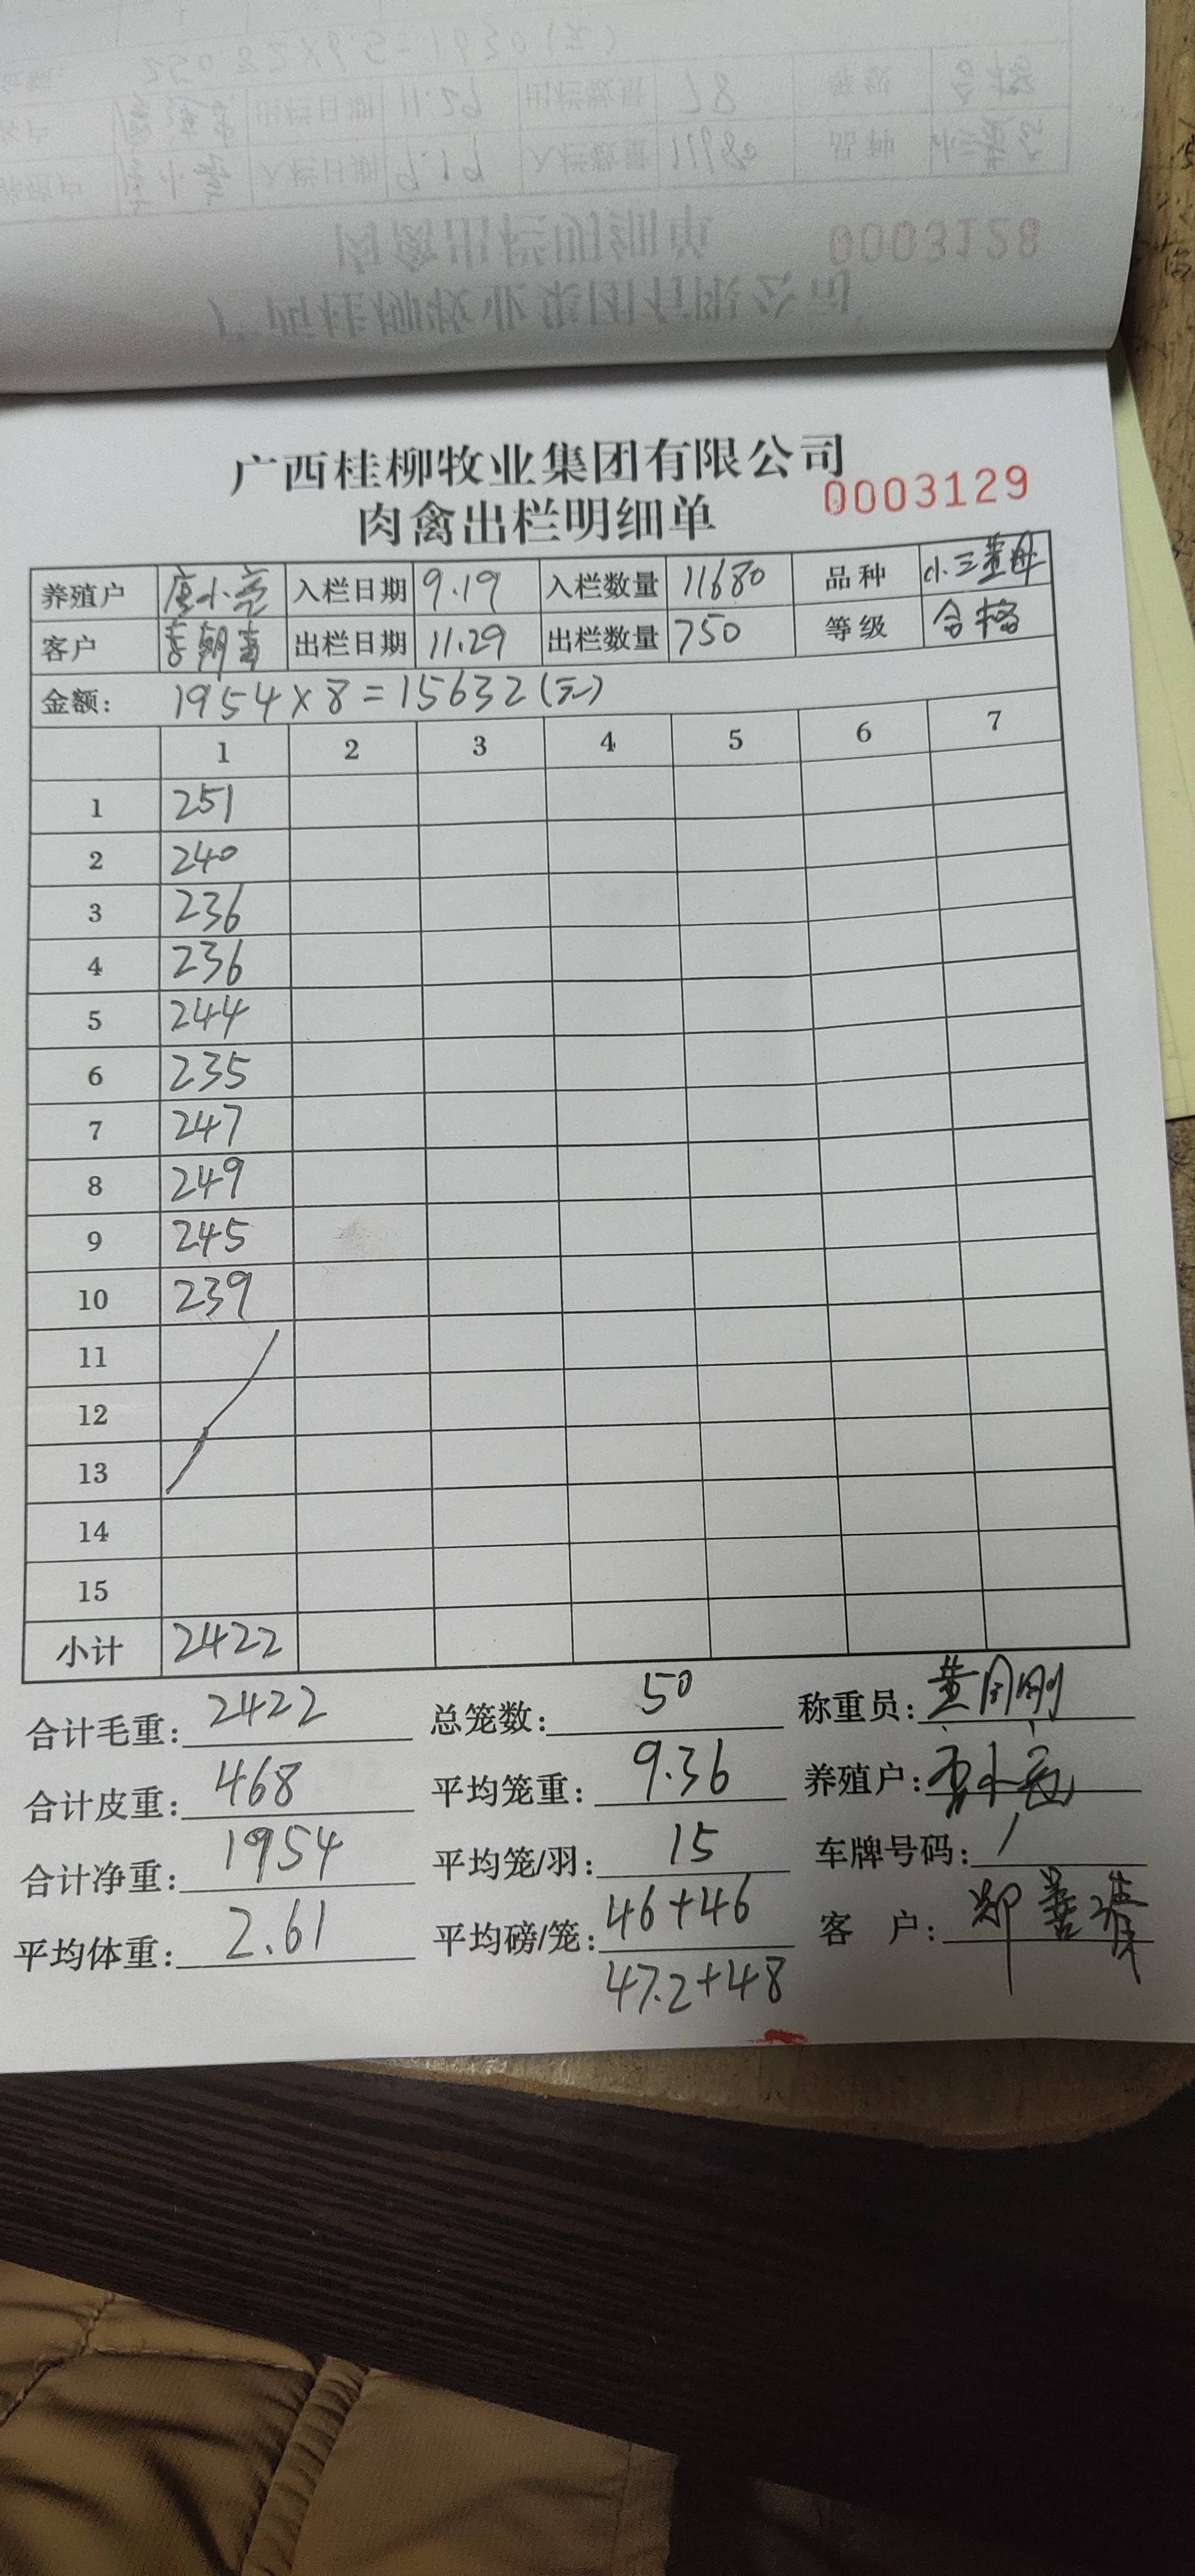 广西桂柳牧业集团有限公司
肉禽出栏明细单 0003128
广西桂柳牧业集团有限公司
肉禽出栏明细单 0003129
养殖户 唐小亮 入栏日期 9.19 入栏数量 11680 品种 小三黄母
客户 出栏日期 11.29 出栏数量 750 等级 合格
金额: 1954×8=15632(元)
1 2 3 4 5 6 7
1 251
2 240
3 236
4 236
5 244
6 235
7 247
8 249
9 245
10 239
11
12
13
14
15
小计 2422
合计毛重: 2422 总笼数: 50 称重员:
合计皮重: 468 平均笼重: 9.36 养殖户:
合计净重: 1954 平均笼/羽: 15 车牌号码: /
平均体重: 2.61 平均磅/笼: 46+46 客 户:
47.2+48